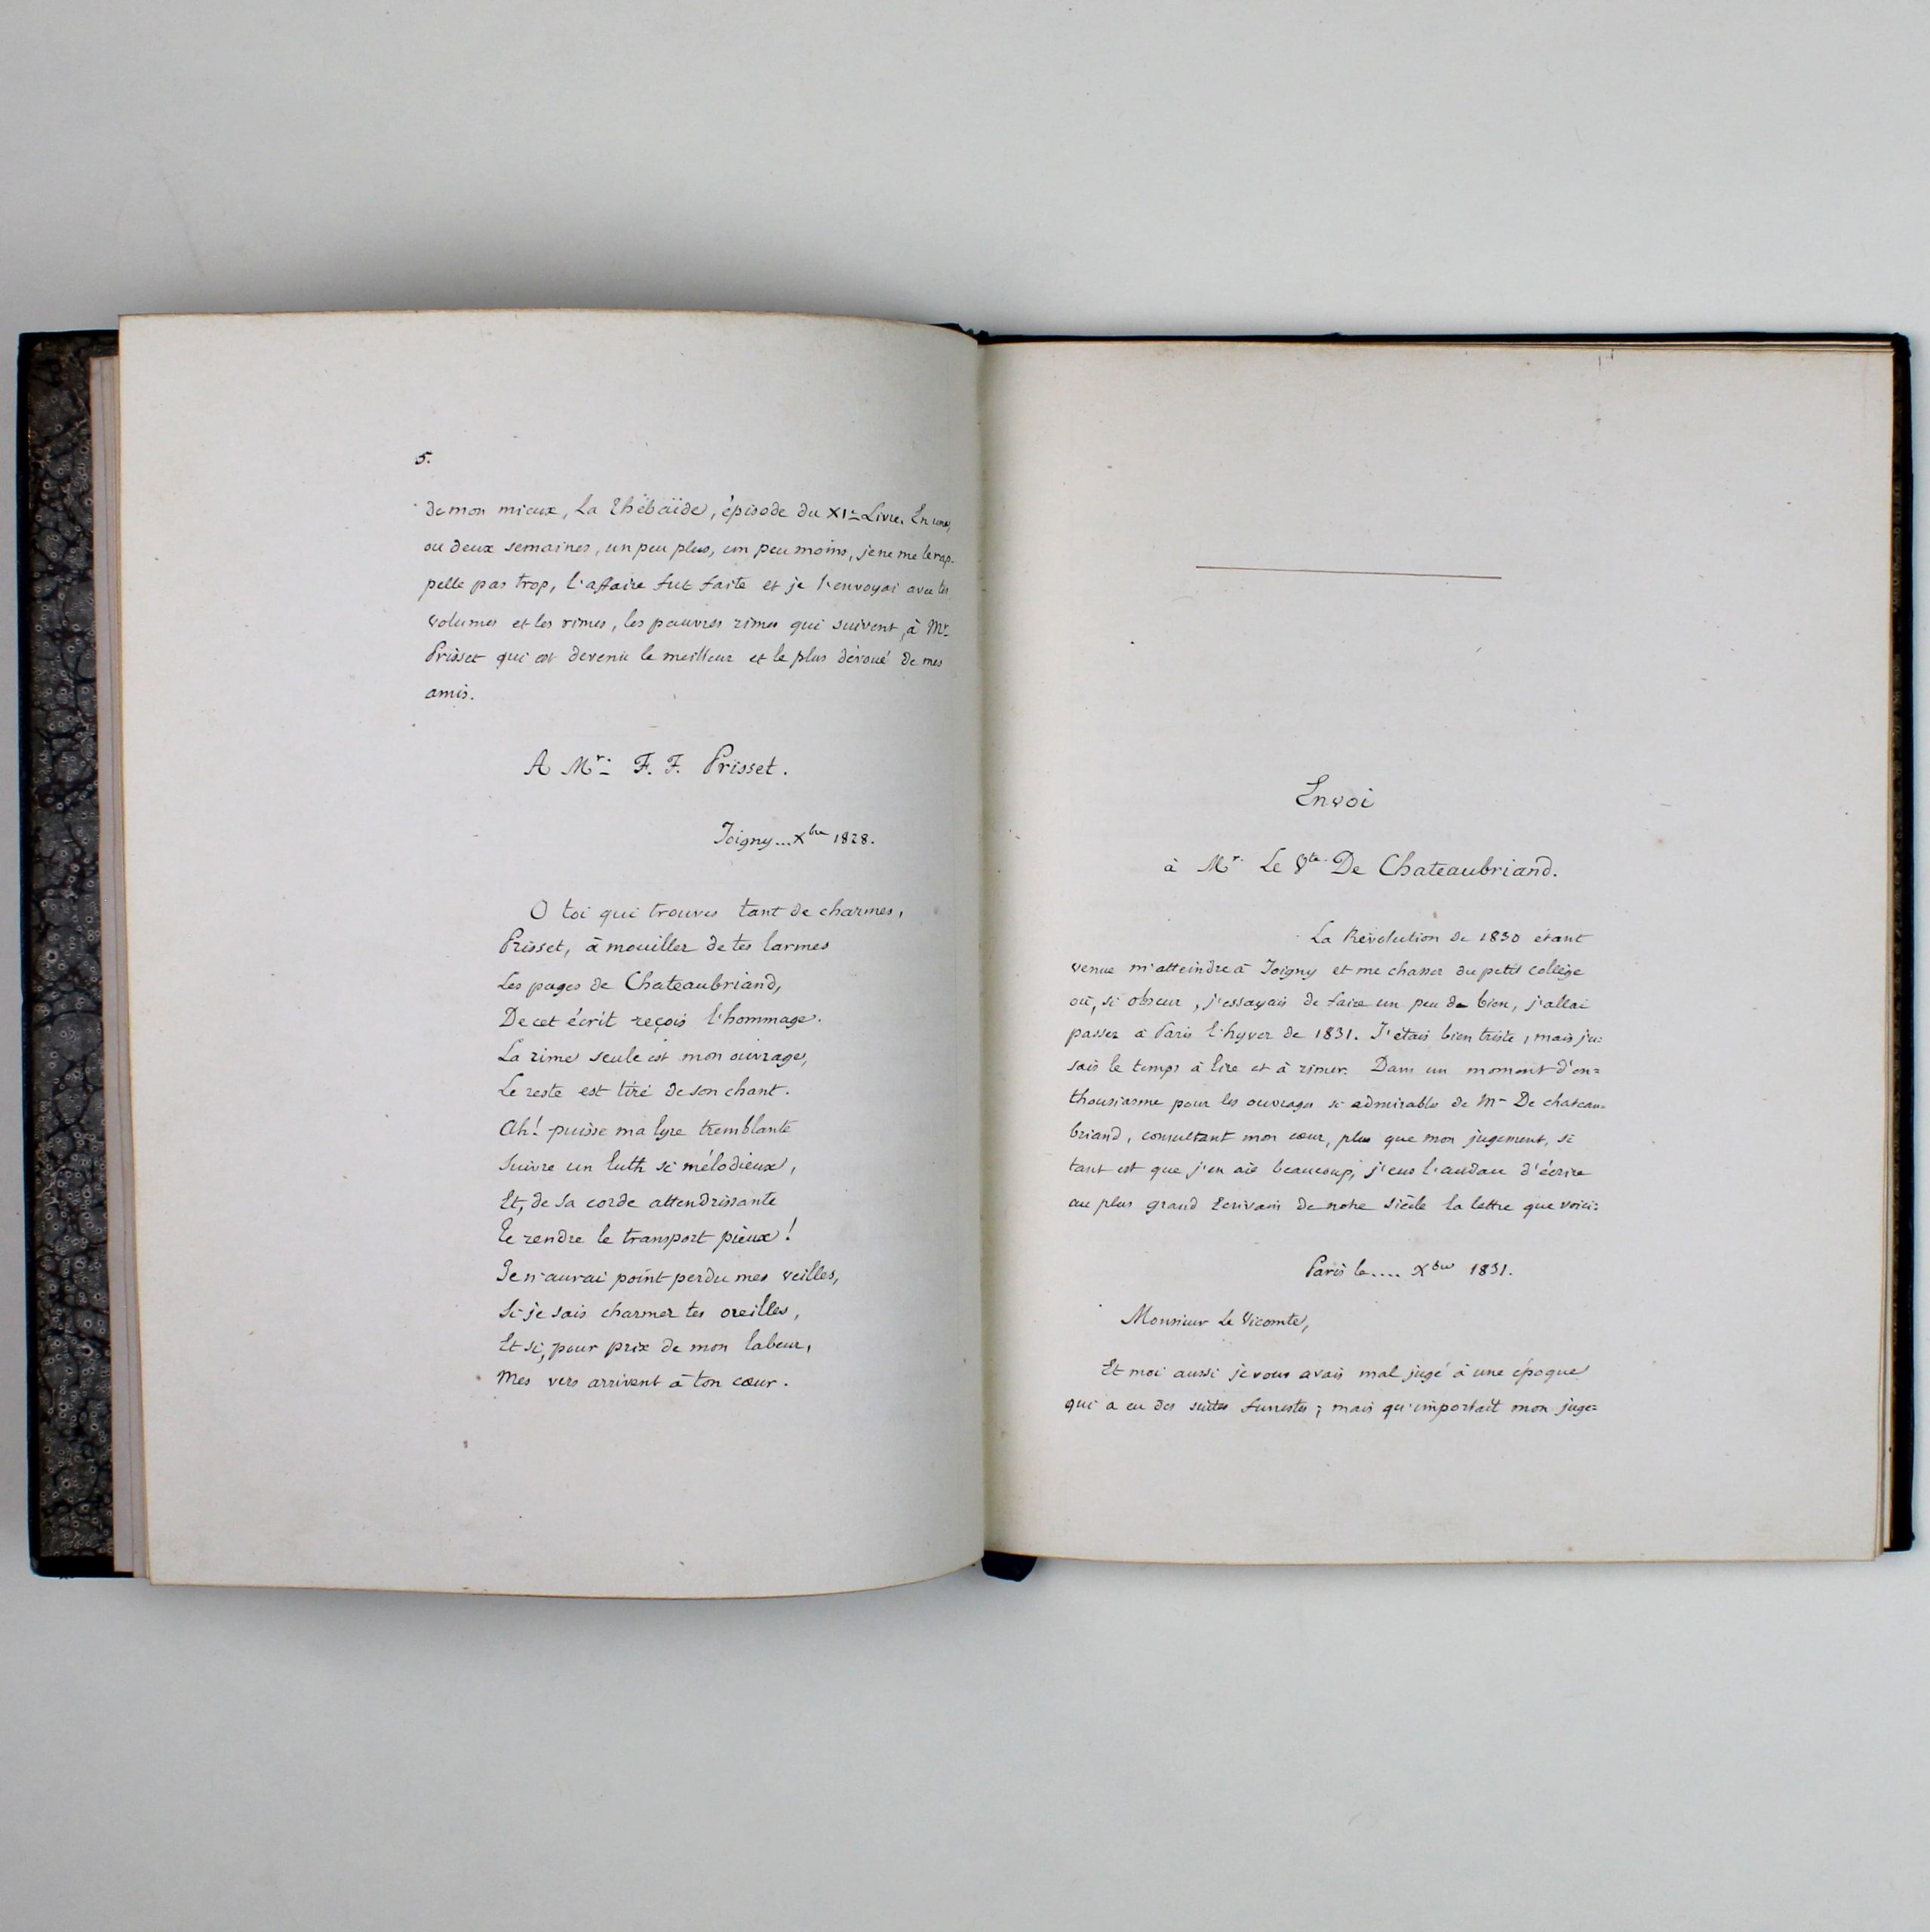 5.
de mon mieux, la Thébaïde, épisode du XIe Livre. En une,
ou deux semaines, un peu plus, un peu moins, je ne me le rap-
pelle pas trop, l'affaire fut faite et je l'envoyai avec les
volumes et les rimes, les pauvres rimes qui suivent, à Mr
Prisset qui est devenu le meilleur et le plus dévoué de mes
amis.
A Mr. F. F. Prisset.
Joigny... Xbre 1828.
O toi qui trouves tant de charmes,
Prisset, à mouiller de tes larmes
Les pages de Chateaubriand,
De cet écrit reçois l'hommage.
La rime seule est mon ouvrage,
Le reste est tiré de son chant.
Ah! puisse ma lyre tremblante
Suivre un luth si mélodieux,
Et, de sa corde attendrissante
Te rendre le transport pieux!
Je n'aurai point perdu mes veilles,
Si je sais charmer tes oreilles,
Et si, pour prix de mon labeur,
Mes vers arrivent à ton cœur.
Envoi
à Mr. Le Vte. De Chateaubriand.
La Révolution de 1830 étant
venue m'atteindre à Joigny et me chasser du petit collège
où, si obscur, j'essayais de faire un peu de bien, j'allai
passer à Paris l'hyver de 1831. J'étais bien triste, mais j'u=
sais le temps à lire et à rimer. Dans un moment d'en=
thousiasme pour les ouvrages si admirables de Mr De chateau=
briand, consultant mon cœur, plus que mon jugement, si
tant est que j'en aie beaucoup, j'eus l'audace d'écrire
au plus grand Ecrivain de notre siècle la lettre que voici:
Paris le.... Xbre 1831.
Monsieur Le Vicomte,
Et moi aussi je vous avais mal jugé à une époque
qui a eu des suites funestes; mais qu'importait mon juge=